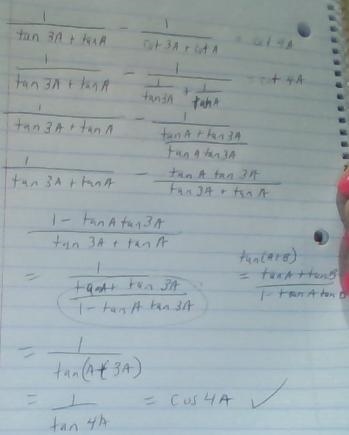 1/(tan 3A + tanA) - 1/(cot 3A + cot A) = cot 4A
1/(tan 3A + tanA) - 1/(1/tan3A + 1/tanA) = cot 4A
1/(tan 3A + tanA) - 1/((tanA + tan3A)/(tanA tan3A))
1/(tan 3A + tanA) - (tanA tan 3A)/(tan 3A + tan A)
(1 - tanA tan 3A)/(tan 3A + tan A)
= 1/((tanA + tan 3A)/(1 - tanA tan 3A))
tan(A+B)
= (tanA + tanB)/(1 - tanA tanB)
= 1/(tan(A+3A))
= 1/(tan 4A) = cos 4A ✓